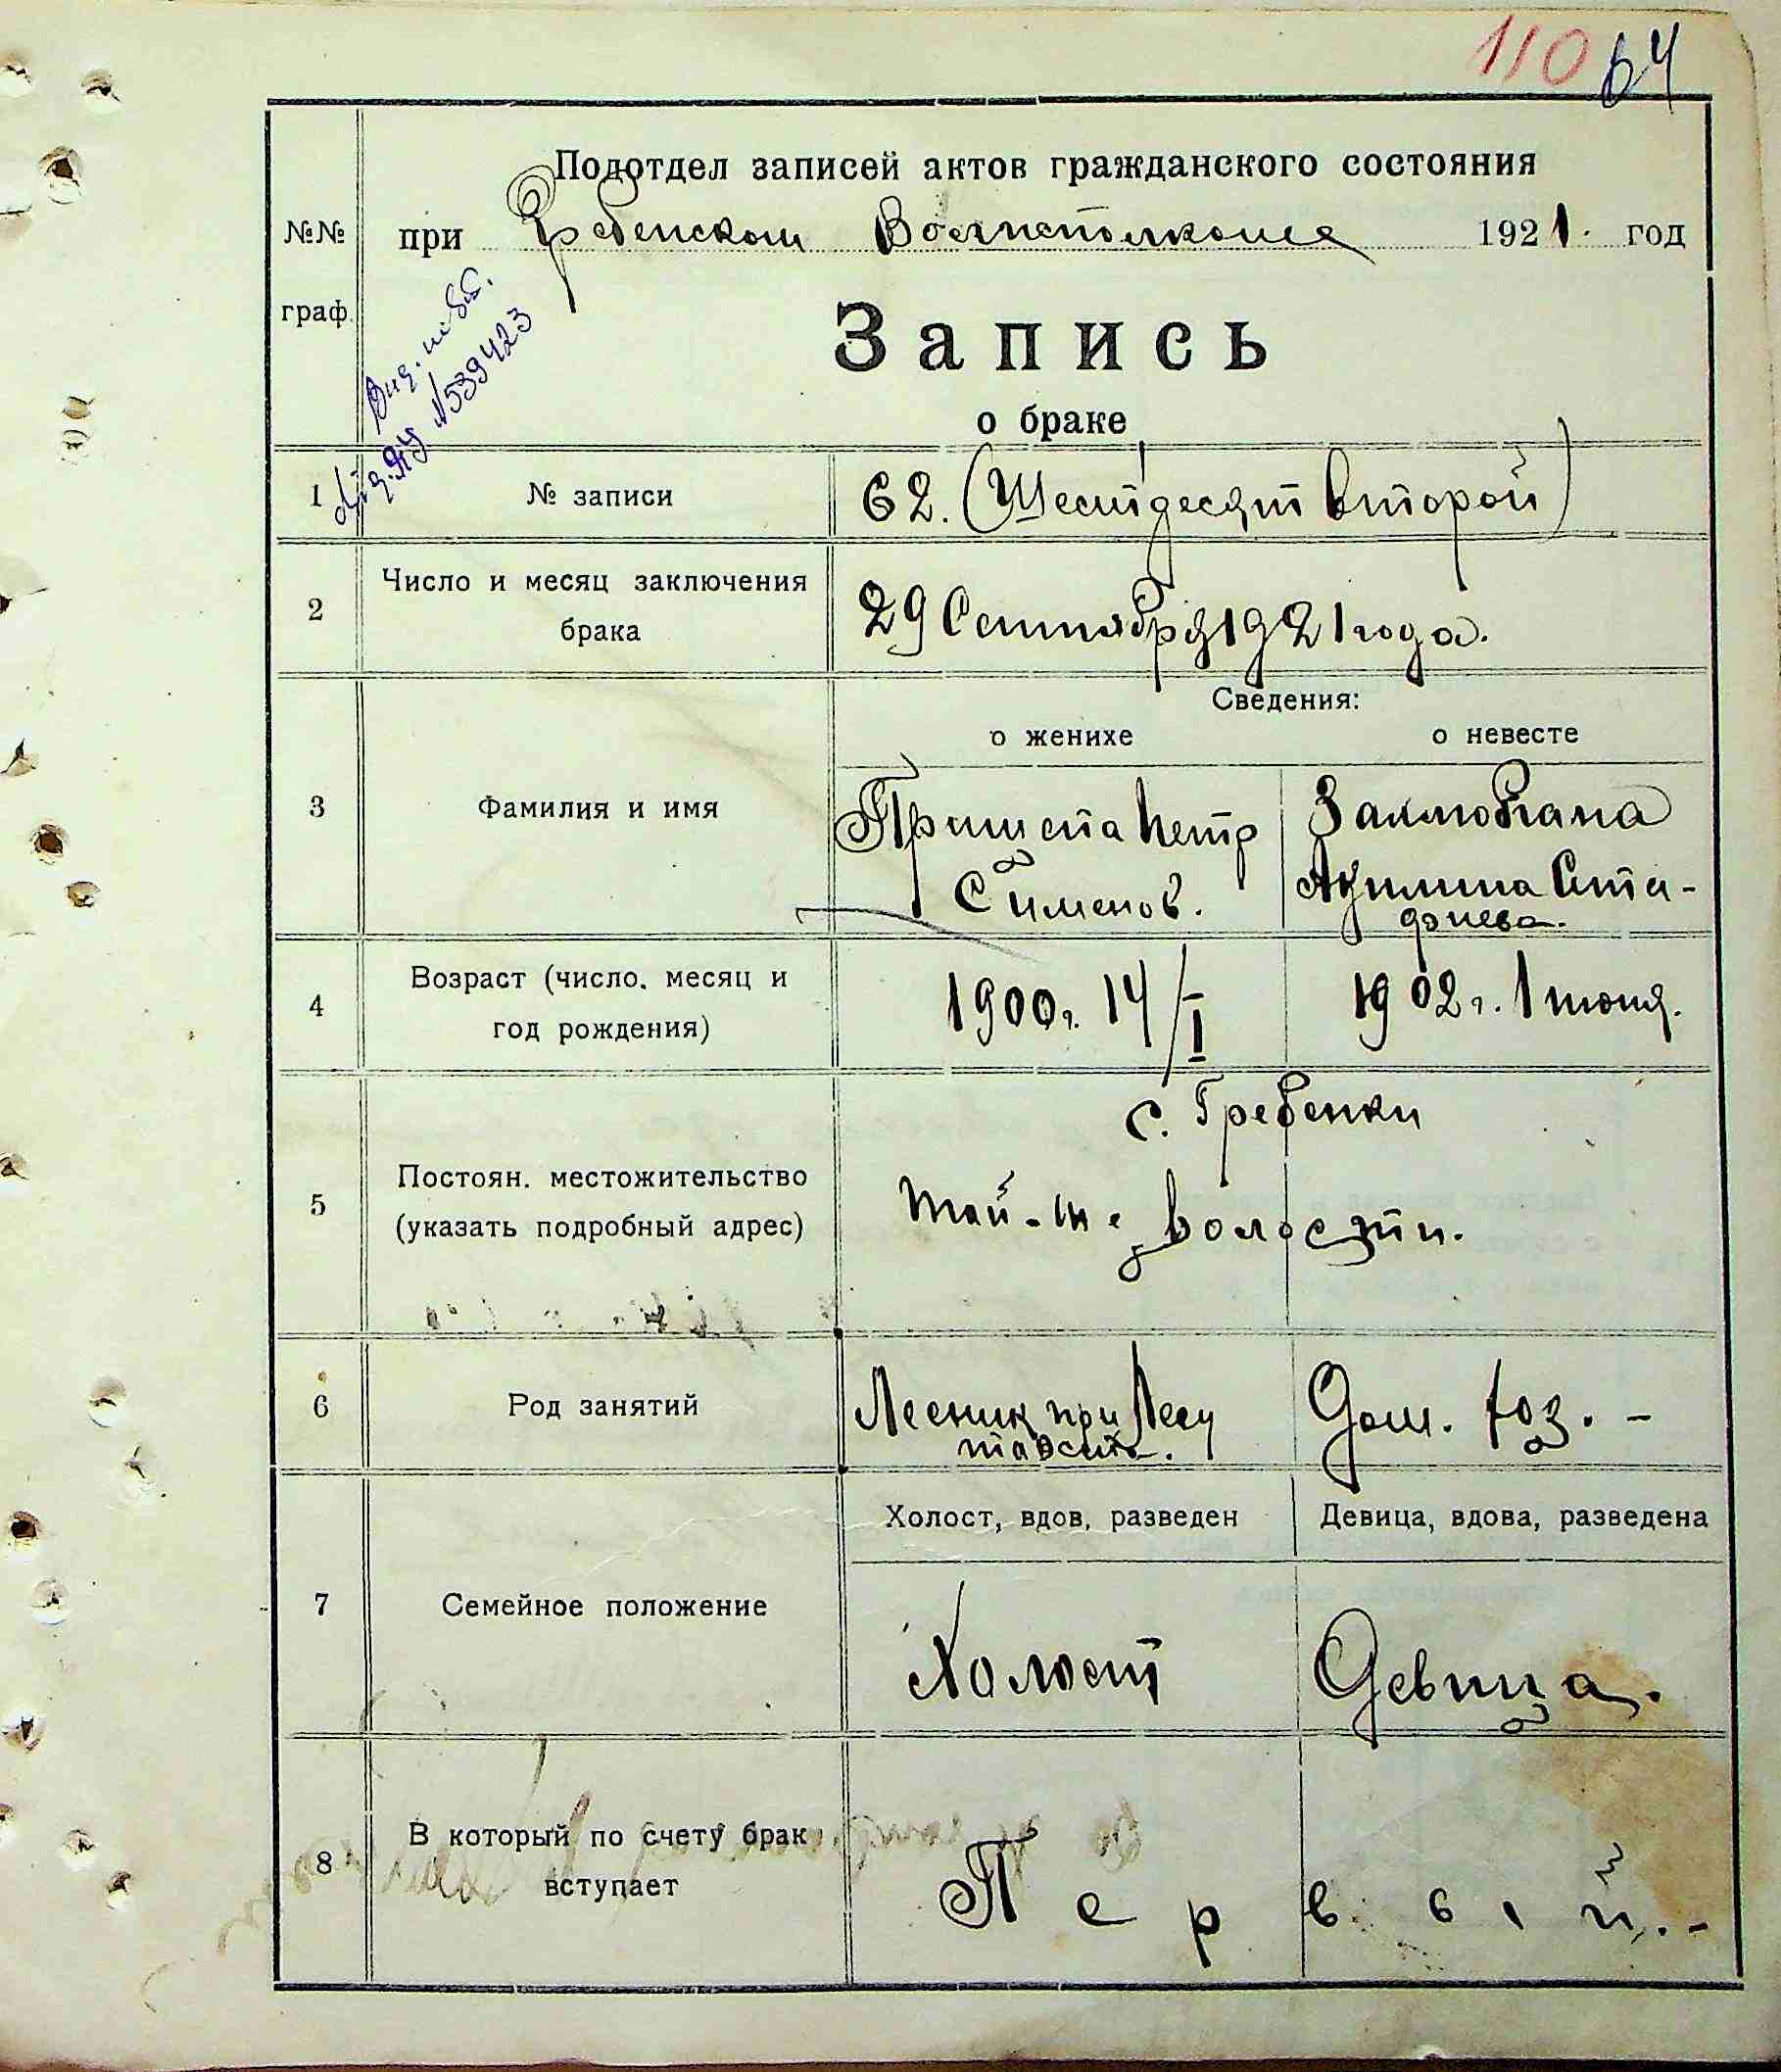 110 64
Подотдел записей актов гражданского состояния
№№ при Гребенском Волисполкоме 1921. год
граф.
Запись
о браке
№539423
1 № записи 62. (Шестдесят второй)
2 Число и месяц заключения
брака
29 Сентября 1921 года.
Сведения:
о женихе о невесте
3 Фамилия и имя
Петр
Сименов.
Акилина
4 Возраст (число. месяц и
год рождения)
1900 г. 14/I 1902 г. 1 июня.
с. Гребенки
5 Постоян. местожительство
(указать подробный адрес)
волости.
6 Род занятий
Лесник при Лесу Дом. хоз. -
Холост, вдов, разведен Девица, вдова, разведена
7 Семейное положение
Холост Девица.
8 В который по счету брак
вступает
Первый. -